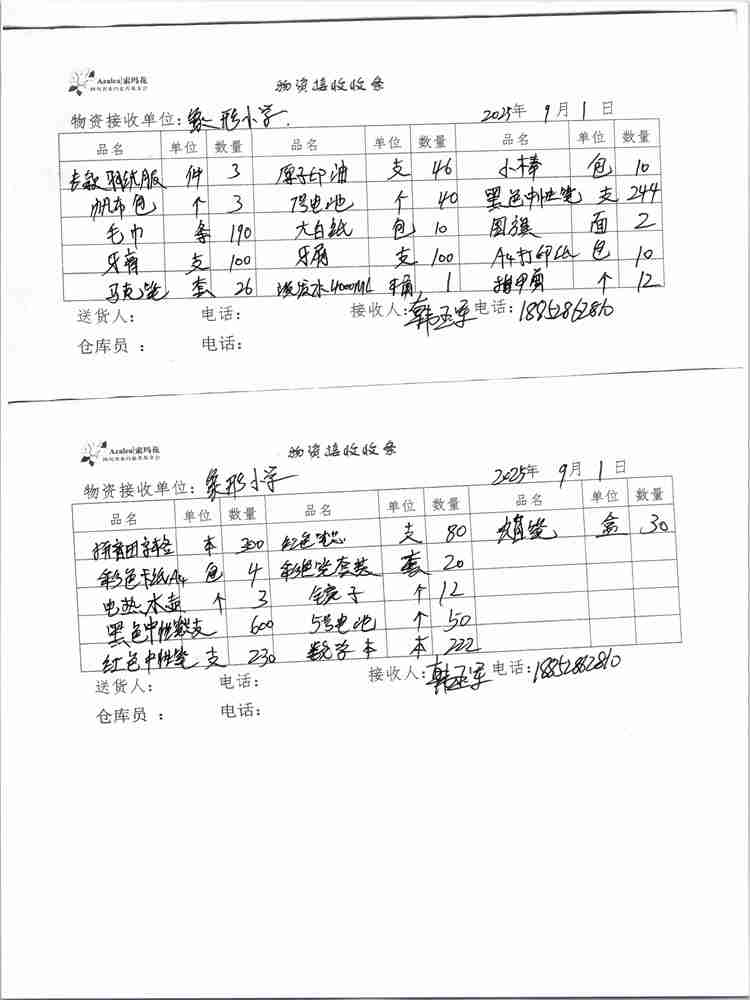 Azalea|索玛花
物资接收收条
物资接收单位:象形小学. 2025年 9月 1日
品名 单位 数量 品名 单位 数量 品名 单位 数量
件 3 原子印油 支 46 小棒 包 10
帆布包 个 3 7号电池 个 40 黑色中性笔 支 244
毛巾 条 190 大白纸 包 10 国旗 面 2
牙膏 支 100 牙刷 支 100 A4打印纸 包 10
马克笔 套 26 4000ML 1 指甲剪 个 12
送货人: 电话: 接收人:韩玉军 电话:18852862810
仓库员 : 电话:
Azalea|索玛花
物资接收收条
物资接收单位:象形小学 2025年 9月 1日
品名 单位 数量 品名 单位 数量 品名 单位 数量
拼音田字格 本 300 红色笔芯 支 80 铅笔 盒 30
彩色卡纸A4 包 4 彩绘笔套装 套 20
电热水壶 个 3 镜子 个 12
黑色中性笔 支 600 5号电池 个 50
红色中性笔 支 230 数学本 本 222
送货人: 电话: 接收人:韩玉军 电话:18852862810
仓库员 : 电话: